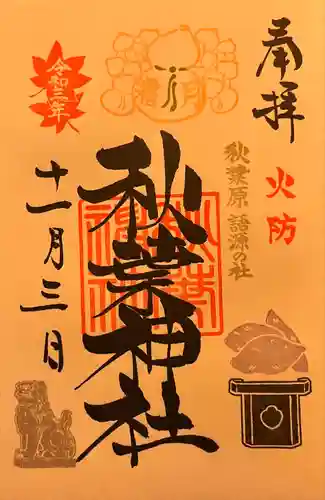 奉拝
火防
秋葉原 語源の社
秋葉神社
令和三年
十一月三日